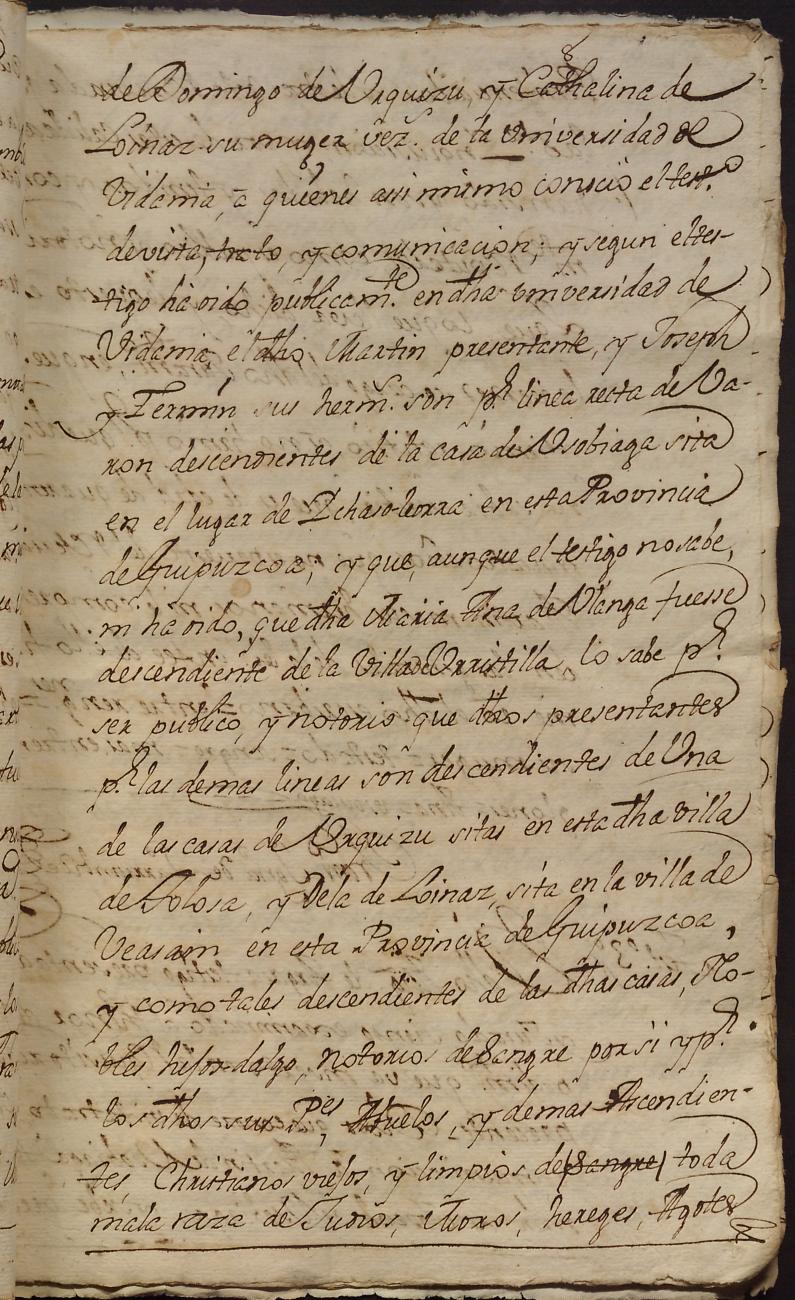 de Domingo de Urquizu y Cathalina de
Loinaz su muger vez.ˢ de la universidad de
Vidania, a quienes assi mismo conocio el test.º
de vista, trato, y comunicacion; y segun el tes-
tigo ha oido publicam.te en dha universidad de
Vidania el dho Martin presentante, y Joseph
y Fermin sus herm.ˢ son p.r linea recta de Va-
ron descendientes de la casa de Usobiaga sita
en el lugar de Ichaso-leorra en esta Provincia
de Guipuzcoa, y que, aunque el testigo no sabe,
ni ha oido, que dha Maria Ana de Ulanga fuesse
descendiente de la Villa de Urristilla, lo sabe p.r
ser publico, y notorio que dhos presentantes
p.r las demas lineas son descendientes de Una
de las casas de Urquizu sitas en esta dha villa
de Tolosa, y Dela de Loinaz, sita en la villa de
Veasain en esta Provincia de Guipuzcoa,
y como tales descendientes de las dhas casas, No-
bles hijos-dalgo, notorios de sangre por si y p.r
los dhos sus P.es, Abuelos, y demas Ascendien-
tes, Christianos viejos, y limpios de (sangre) toda
mala raza de Judios, Moros, hereges, Agotes